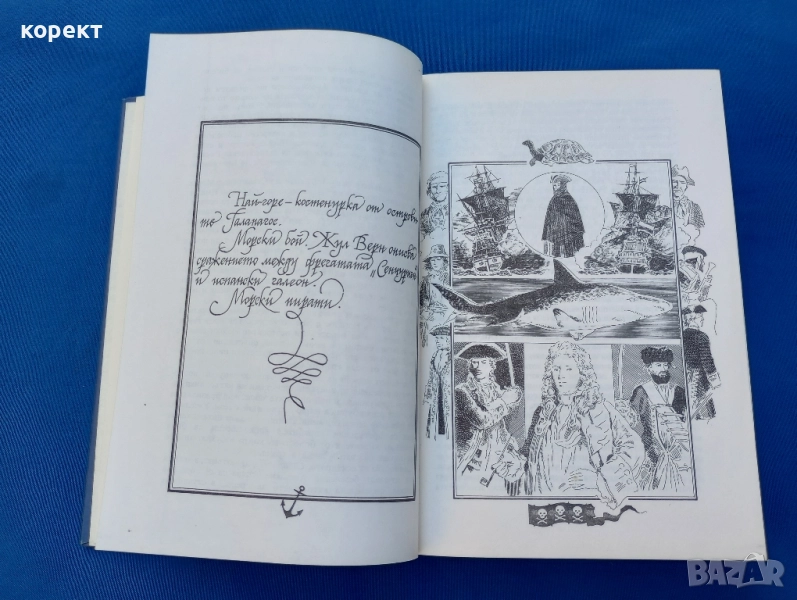 корект
Най-горе – костенурка от острови
те Галапагос.
Морски бой. Жул Верн описва
сражението между фрегатата „Сенчурион“
и испански галеон.
Морски пирати.
BAZAR